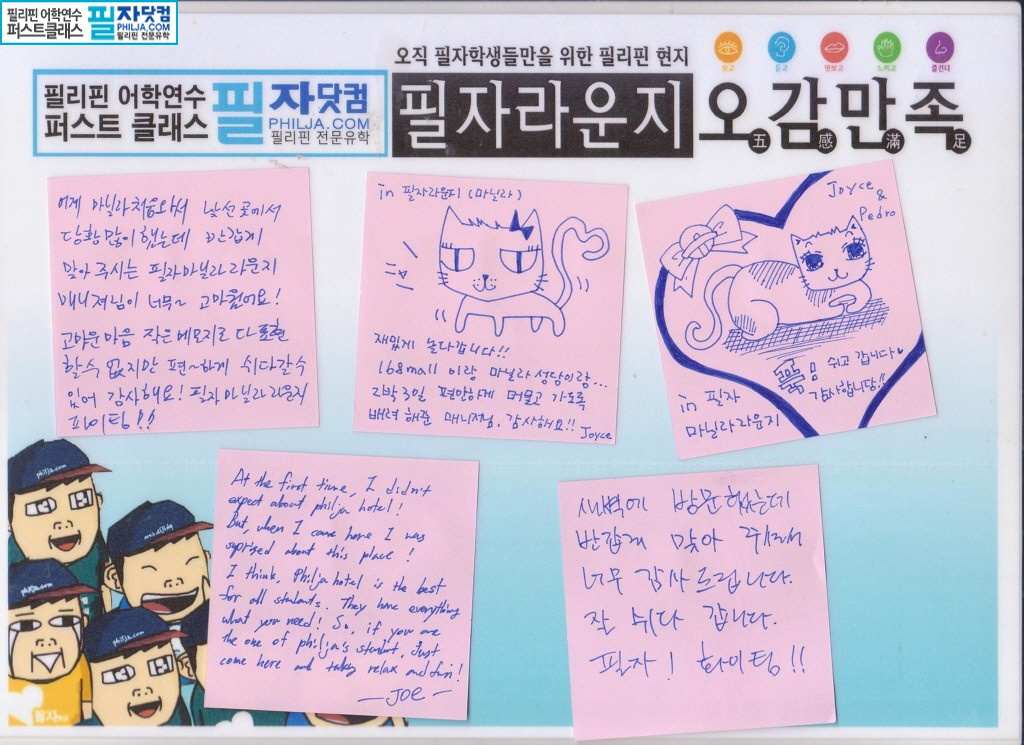 필리핀 어학연수
퍼스트클래스
필자닷컴
PHILJA.COM
필리핀 전문유학
오직 필자학생들만을 위한 필리핀 현지
필리핀 어학연수
퍼스트 클래스
필자닷컴
PHILJA.COM
필리핀 전문유학
필자라운지 오감만족
五感滿足
보고 듣고 맛보고 느끼고 즐긴다
어제 마닐라 처음와서 낯선곳에서
당황많이 했는데 반갑게
맞아 주시는 필자마닐라 라운지
매니져님이 너무~ 고마웠어요!
고마운마음 작은메모지로 다표현
할수 없지만 편~하게 쉬다갈수
있어 감사해요! 필자마닐라 라운지
파이팅!!
in 필자라운지 (마닐라)
재밌게 놀다갑니다!!
168mall 이랑 마닐라 성당이랑...
2박 3일 편안하게 머물고 가도록
배려해준 매니저님, 감사해요!! Joyce
Joyce
&
Pedro
푹! 쉬고 갑니다♥
감사합니다!!
in 필자
마닐라라운지
At the first time, I didn't
expect about philja hotel!
But, when I came here I was
suprised about this place!
I think, Philja hotel is the best
for all students. They have everything
what you need! So, if you are
the one of philja's student, Just
come here and taking relax and fun!
—JOE—
새벽에 방문했는데
반갑게 맞아 주셔서
너무 감사드립니다.
잘 쉬다 갑니다.
필자! 화이팅!!
philja.com
philja.com
philja.com
필자